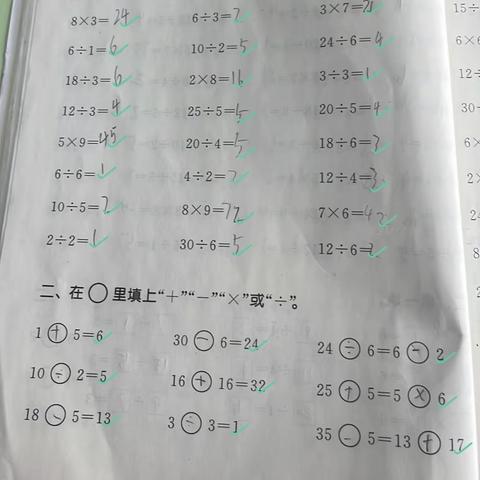 8×3=24 6÷3=2 3×7=21 15÷
6÷1=6 10÷2=5 24÷6=4 6×
18÷3=6 2×8=16 3÷3=1 12÷
12÷3=4 25÷5=5 20÷5=4 30÷
5×9=45 20÷4=5 18÷6=3 6×
6÷6=1 4÷2=2 12÷4=3 2×
10÷5=2 8×9=72 7×6=42 24
2÷2=1 30÷6=5 12÷6=2 8
二、在○里填上“+”“-”“×”或“÷”。
1+5=6 30-6=24 24÷6=6-2
10÷2=5 16+16=32 25+5=5×6
18-5=13 3÷3=1 35-5=13+17